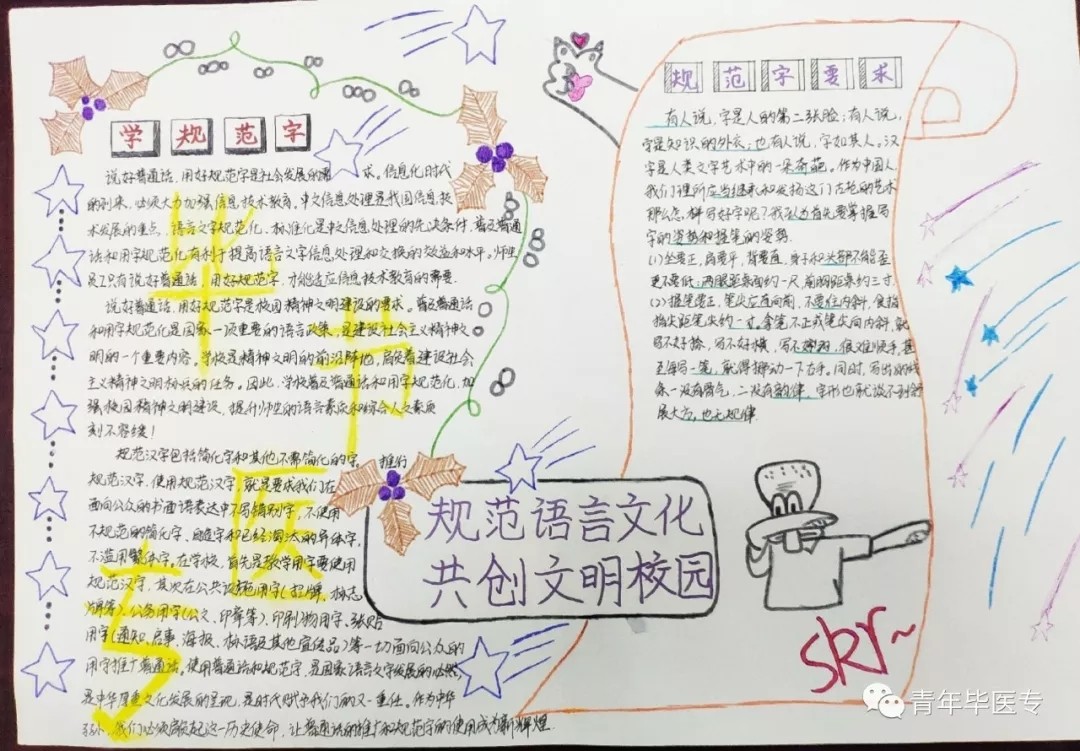 学规范字
说好普通话、用好规范字是社会发展的需求,信息化时代
的到来,必须大力加强信息技术教育,中文信息处理是我国信息技
术发展的重点,语言文字规范化、标准化是中文信息处理的先决条件,普及普通
话和用字规范化有利于提高语言文字信息处理和交换的效益和水平。师生
员只有说好普通话、用好规范字,才能适应信息技术教育的需要。
说好普通话、用好规范字是校园精神文明建设的要求。普及普通话
和用字规范化是国家一项重要的语言政策,是建设社会主义精神文
明的一个重要内容。学校是精神文明的前沿阵地,肩负着建设社会
主义精神文明标兵的任务。因此,学校普及普通话和用字规范化,加
强校园精神文明建设,提升师生的语言素质和综合人文素质
刻不容缓!
规范汉字包括简化字和其他不需简化的字。推行
规范汉字,使用规范汉字,就是要求我们在
面向公众的书面语表达中不写错别字,不使用
不规范的简化字,自造字和已经淘汰的异体字,
不滥用繁体字。在学校,首先是教学用字要使用
规范汉字,其次在公共设施用字(招牌、标志
牌等)、公务用字(公文、印章等)、印刷物用字、张贴
用字(通知、启事、海报、标语及其他宣传品)等一切面向公众的
用字推广普通话。使用普通话和规范字,是国家语言文字发展的必然,
是中华厚重文化发展的呈现,是时代赋予我们的又一重任。作为中华
我们必须肩负起这一历史使命,让普通话的推广和规范字的使用成为新辉煌
毕节医专
规范语言文化
共创文明校园
规范字要求
有人说,字是人的第二张脸;有人说,
字是知识的外衣;也有人说,字如其人。汉
字是人类文字艺术中的一朵奇葩。作为中国人
我们理所应当继承和发扬这门古老的艺术
那么怎样写好字呢?我认为首先要掌握写
字的姿势和握笔的姿势。
(1)坐要正,肩要平,背要直,身子和头部不能歪
更不要低,两眼距桌面约一尺,前胸距桌约三寸。
(2)握笔要正,笔尖应直向前,不要往内斜,食指
指尖距笔尖约一寸。拿笔不正或笔尖向内斜,就
写不好捺,写不好横,写不好,很难顺手,甚
至每写一笔,就得挪动一下右手。同时,写出的线
条一没有骨气,二没有韵律,字形也就谈不到舒
展大方,也无规律
skr~
青年毕医专